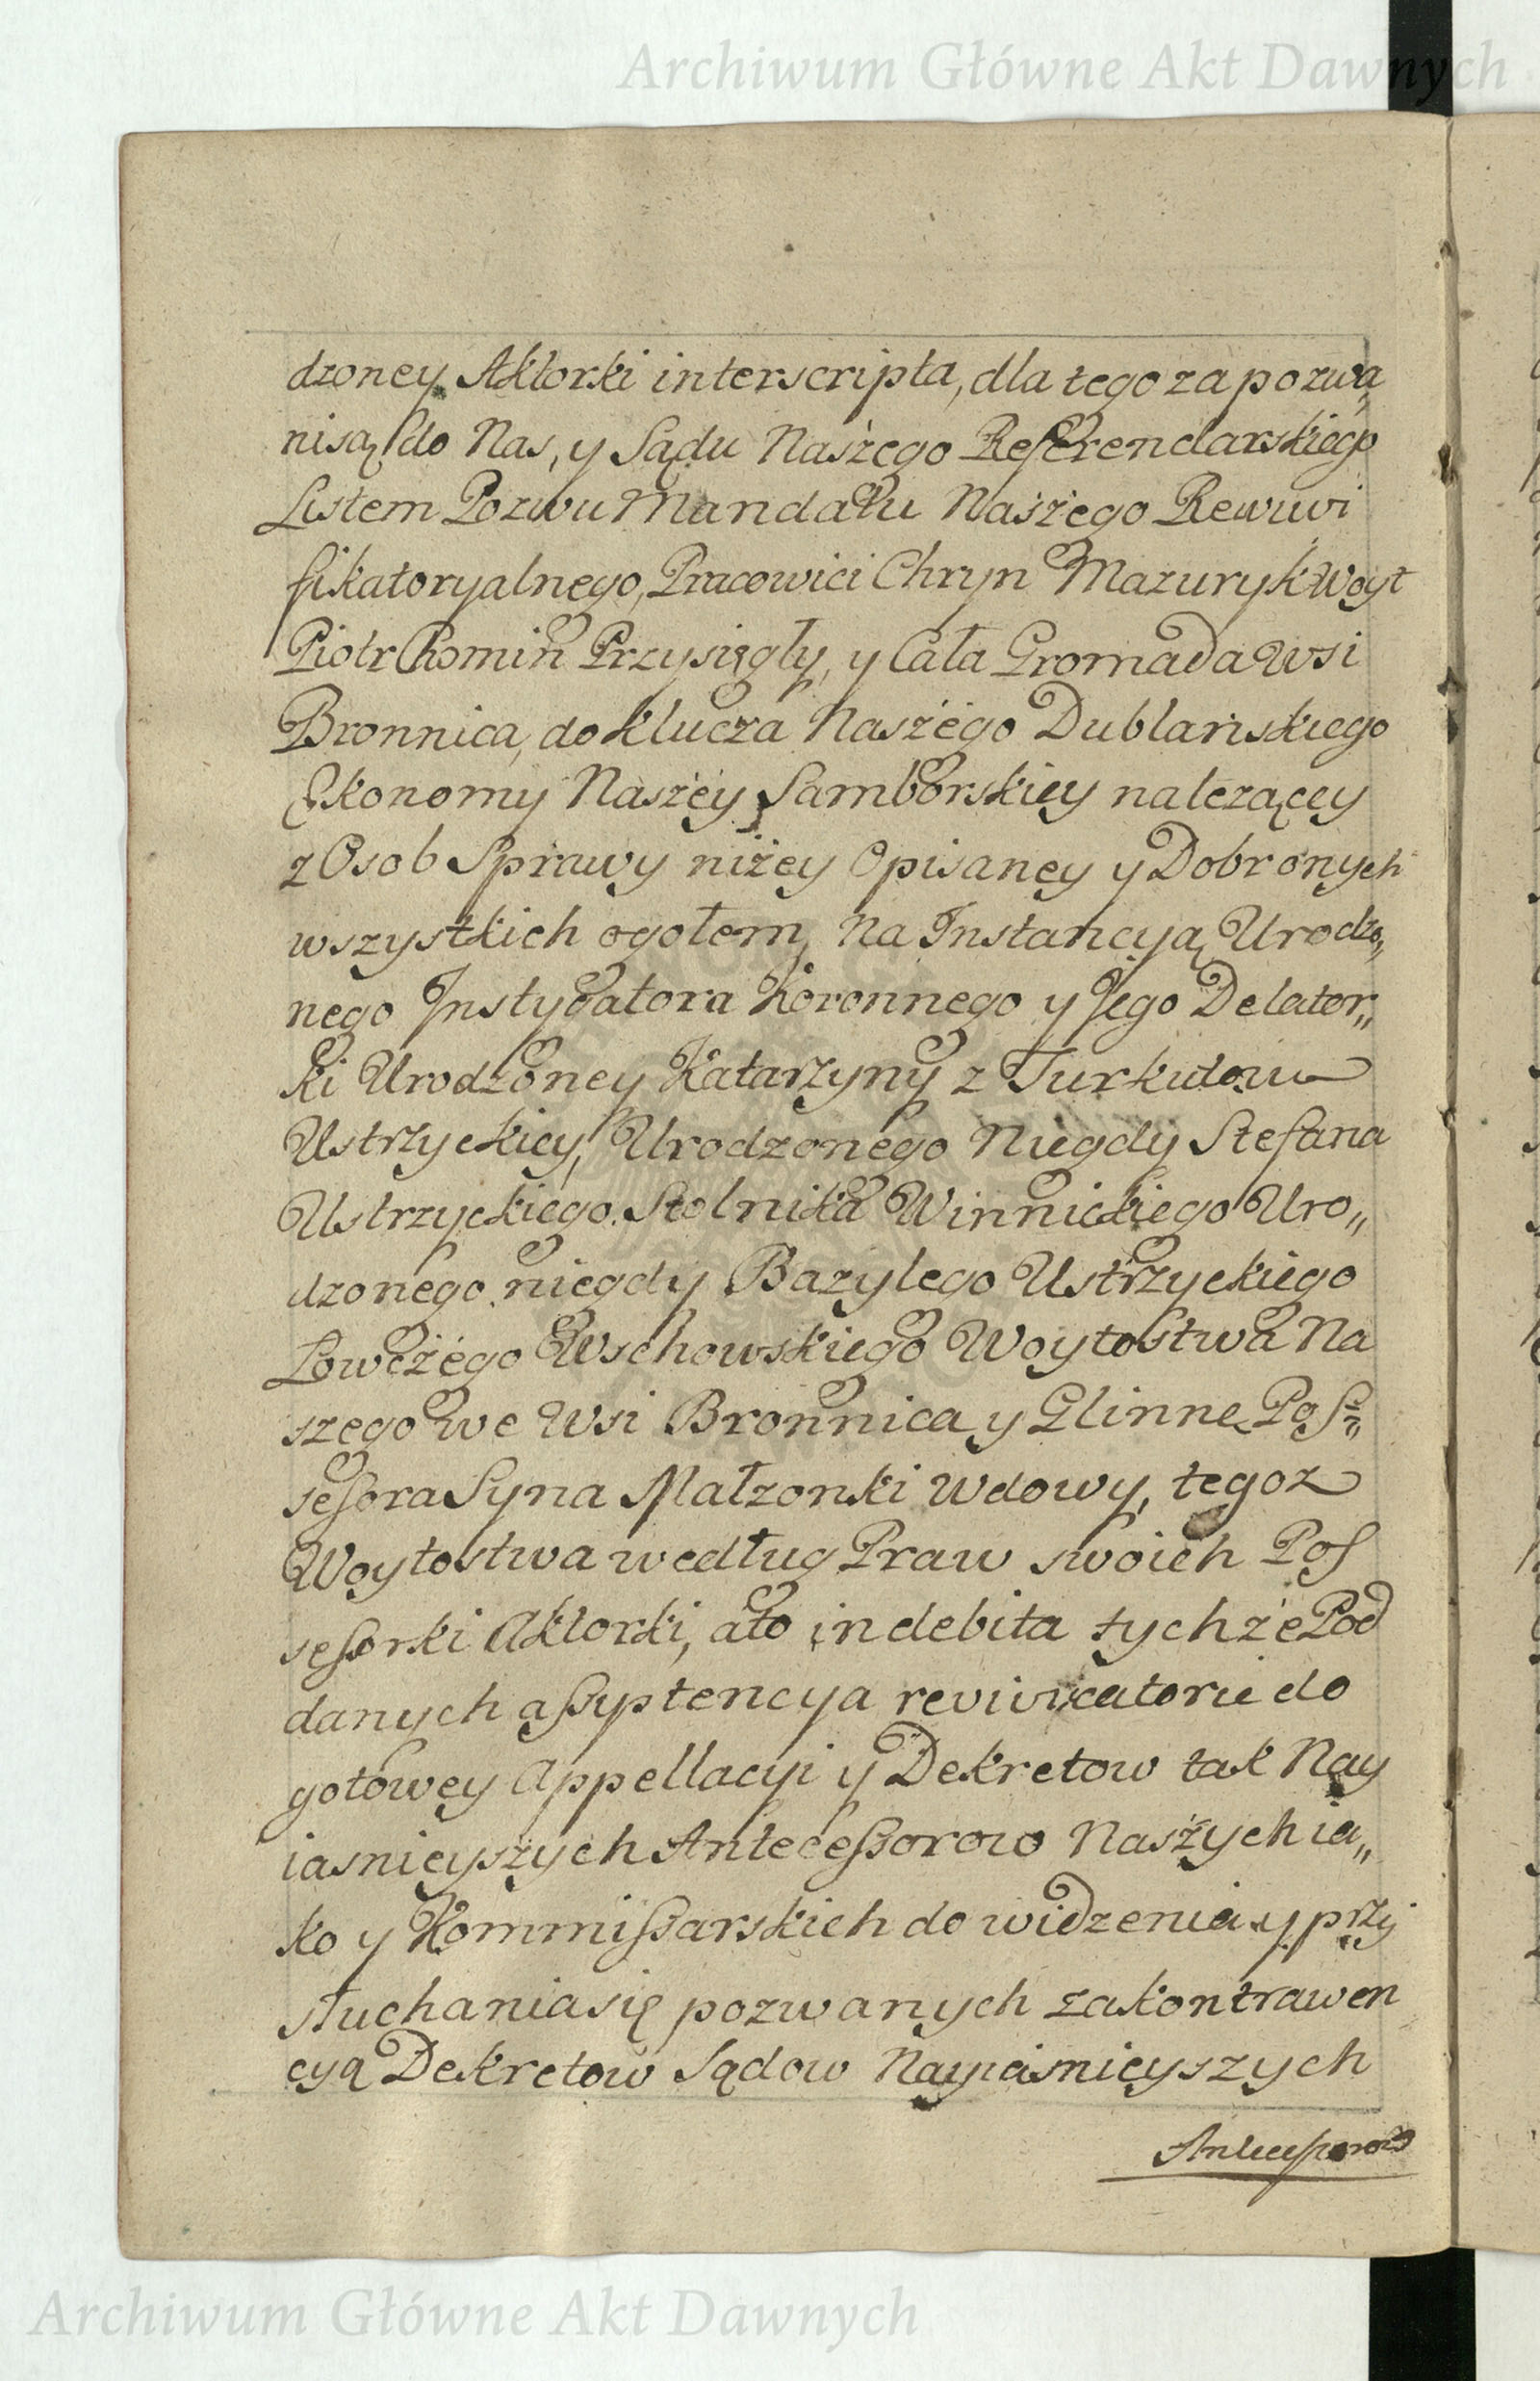 Archiwum Główne Akt Dawnych
dzoney Aktorki interscripta, dla tego zapozwa„
nisą do Nas, y Sądu Naszego Referendarskiego
Listem Pozwu Mandatu Naszego Rewiwi
fikatoryalnego, Pracowici Chryn Mazuryk Woyt
Piotr Chomin Przysięgły, y Cała Gromada Wsi
Bronnica, do Klucza Naszego Dublańskiego
Ekonomy Naszey Samborskiey należącey
z Osob Sprawy niżey Opisaney y Dobr onych
wszystkich ogołem, Na Instancyą Urodzo„
nego Instygatora Koronnego y Jego Delator„
ki Urodzoney Katarzyny z Turkułow
Ustrzyckiey, Urodzonego Niegdy Stefana
Ustrzyckiego Stolnika Winnickiego Uro„
dzonego niegdy Bazylego Ustrzyckiego
Łowczego Wschowskiego Woytostwa Na
szego we Wsi Bronnica y Glinne Pos„
sessora Syna Małzonki Wdowy, tegoz
Woytostwa według Praw swoich Pos
sessorki Aktorki, ato indebita tychże Pod
danych assystencya revivicatorie do
gotowey Appellacyi y Dekretow tak Nay
iasnieyszych Antecessorow Naszych ia„
ko y Kommissarskich do widzenia y przy
słuchania się pozwanych zakontrawen
cyą Dekretow Sądow Nayiasnieyszych
Antecessorow
Archiwum Główne Akt Dawnych